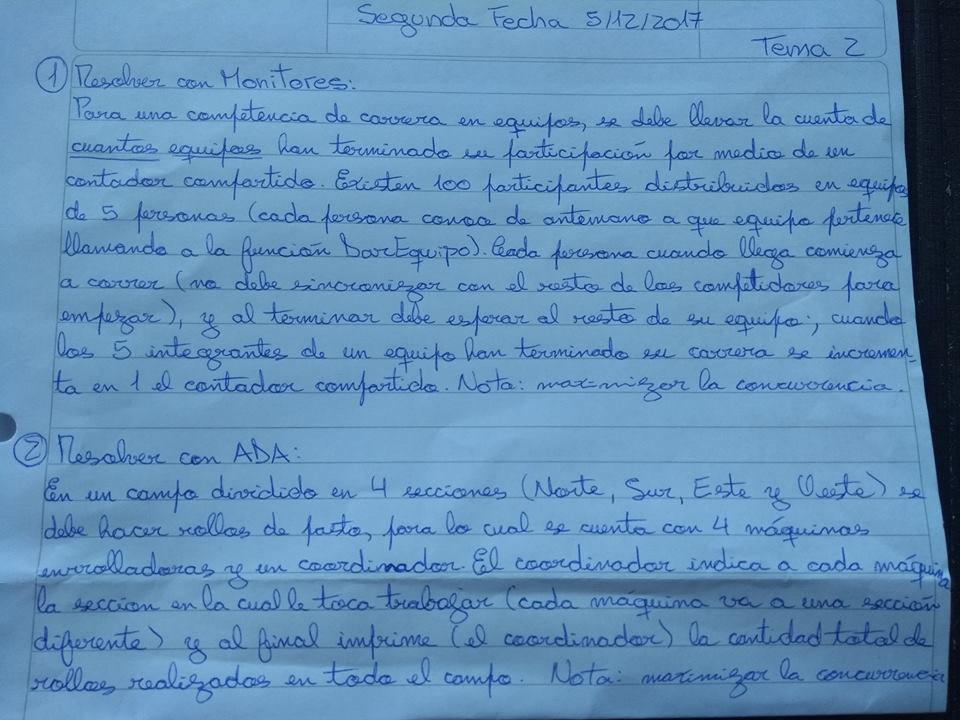 Segunda Fecha 5/12/2017
Tema 2
① Resolver con Monitores:
Para una competencia de carrera en equipos, se debe llevar la cuenta de
cuantos equipos han terminado su participación por medio de un
contador compartido. Existen 100 participantes distribuidos en equipos
de 5 personas (cada persona conoce de antemano a que equipo pertenece
llamando a la función DarEquipo). Cada persona cuando llega comienza
a correr (no debe sincronizar con el resto de los competidores para
empezar), y al terminar debe esperar al resto de su equipo; cuando
los 5 integrantes de un equipo han terminado su carrera se incremen-
ta en 1 el contador compartido. Nota: maximizar la concurrencia.
② Resolver con ADA:
En un campo dividido en 4 secciones (Norte, Sur, Este y Oeste) se
debe hacer rollos de pasto, para lo cual se cuenta con 4 máquinas
enrolladoras y un coordinador. El coordinador indica a cada máquina
la seccion en la cual le toca trabajar (cada máquina va a una sección
diferente) y al final imprime (el coordinador) la cantidad total de
rollos realizados en todo el campo. Nota: maximizar la concurrencia